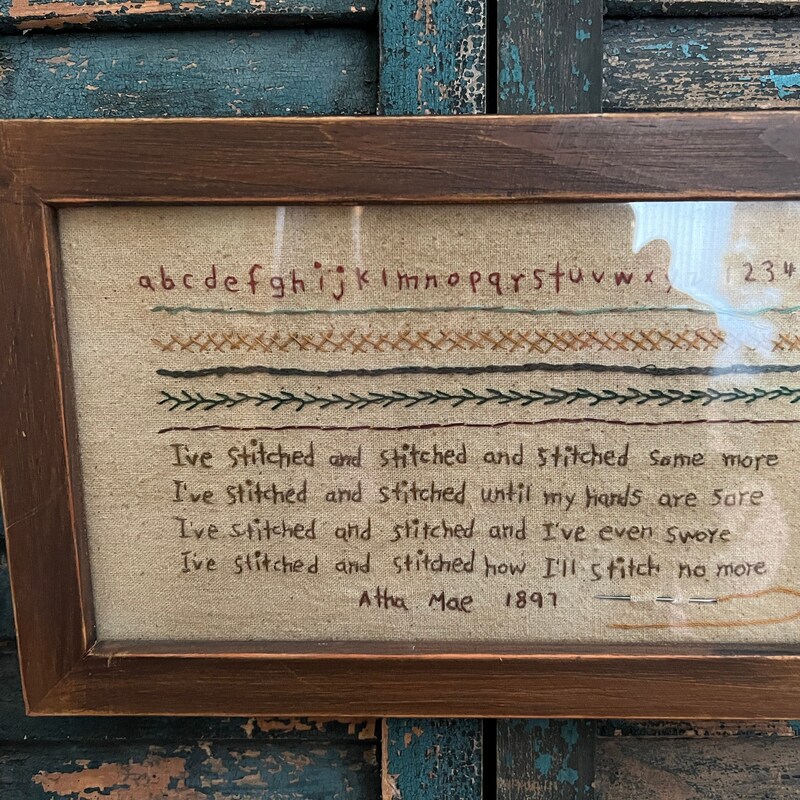 abcdefghijklmnopqrstuvwx 1234
I've stitched and stitched and stitched some more
I've stitched and stitched until my hands are sore
I've stitched and stitched and I've even swore
I've stitched and stitched how I'll stitch no more
Atha Mae 1897